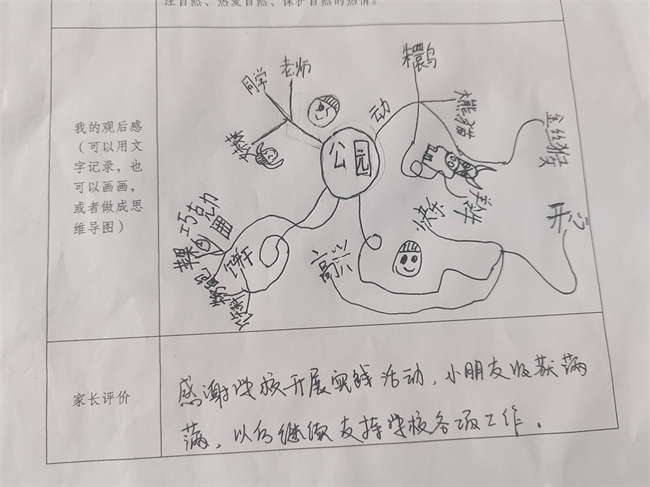 注自然、热爱自然、保护自然的热情。
我的观后感
（可以用文
字记录，也
可以画画，
或者做成思
维导图）
同学
老师
公园
动
大熊猫
金丝猴
开心
高兴
巧克力
饼干
家长评价
感谢学校开展实践活动，小朋友收获满
满，以后继续支持学校各项工作。